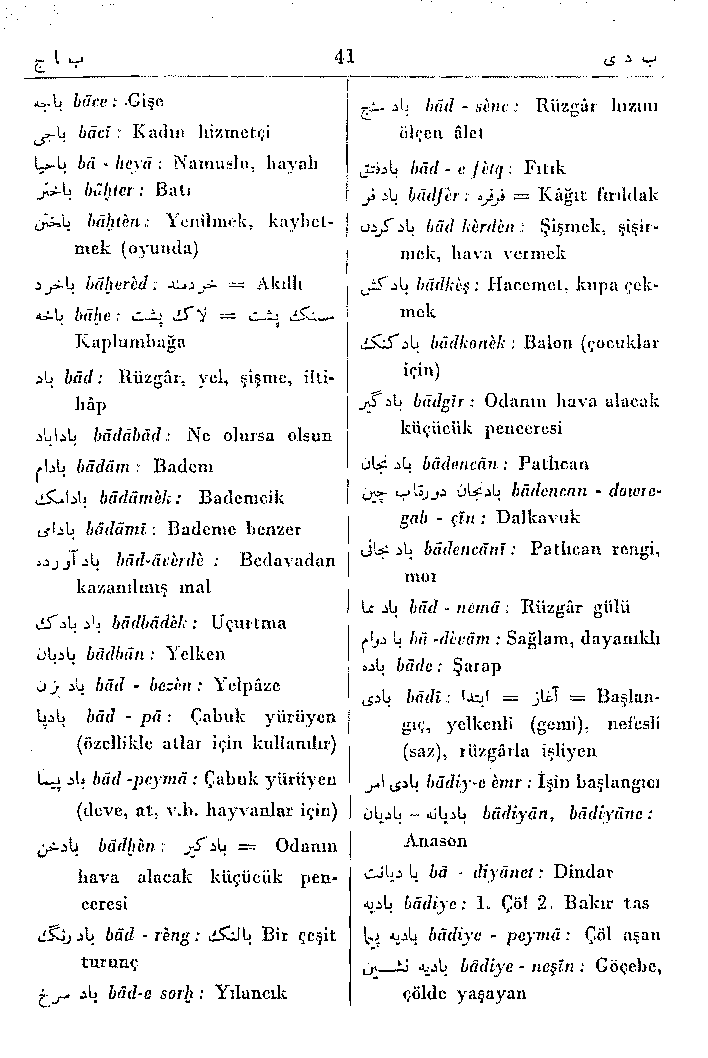 ب ا ج 41 ب د ى
باجه bāce : Gişe
باجى bācī : Kadın hizmetçi
باحيا bā - heyā : Namuslu, hayalı
باختر bāḫter : Batı
باختن bāḫtèn : Yenilmek, kaybet-
mek (oyunda)
باخرد bāḫerèd : خردمند = Akıllı
باخه bāḫe : سنگ پشت = لاك پشت
Kaplumbağa
باد bād : Rüzgâr, yel, şişme, ilti-
hâp
باداباد bādābād : Ne olursa olsun
بادام bādām : Badem
بادامك bādāmèk : Bademcik
بادامى bādāmī : Bademe benzer
باد آورده bād-āvèrdè : Bedavadan
kazanılmış mal
بادبادك bādbādèk : Uçurtma
بادبان bādbān : Yelken
باد بزن bād - bezèn : Yelpâze
بادپا bād - pā : Çabuk yürüyen
(özellikle atlar için kullanılır)
باد پيما bād -peymā : Çabuk yürüyen
(deve, at, v.b. hayvanlar için)
بادخن bādḫèn : بادگير = Odanın
hava alacak küçücük pen-
ceresi
باد رنگ bād - rèng : بالنگ Bir çeşit
turunç
باد سرخ bād-e sorḫ : Yılancık
باد سنج bād - sènc : Rüzgâr hızını
ölçen âlet
بادفتق bād - e fètq : Fıtık
باد فر bādfèr : فرفره = Kâğıt fırıldak
باد كردن bād kèrdèn : Şişmek, şişir-
mek, hava vermek
باد كش bādkèş : Hacemet, kupa çek-
mek
بادكنك bādkonèk : Balon (çocuklar
için)
بادگير bādgīr : Odanın hava alacak
küçücük penceresi
باد نجان bādencān : Patlıcan
بادنجان دورقاب چين bādencan - dowre-
gab - çīn : Dalkavuk
باد نجانى bādencānī : Patlıcan rengi,
mor
باد نما bād - nemā : Rüzgâr gülü
با دوام bā -dèvām : Sağlam, dayanıklı
باده bāde : Şarap
بادى bādī : ابتدا = آغاز = Başlan-
gıç, yelkenli (gemi), nefesli
(saz), rüzgârla işliyen
بادى امر bādiy-e èmr : İşin başlangıcı
باديان – باديانه bādiyān, bādiyāne :
Anason
با ديانت bā - diyānet : Dindar
باديه bādiye : 1. Çöl 2. Bakır tas
باديه پيما bādiye - peymā : Çöl aşan
باديه نشين bādiye - neşīn : Göçebe,
çölde yaşayan